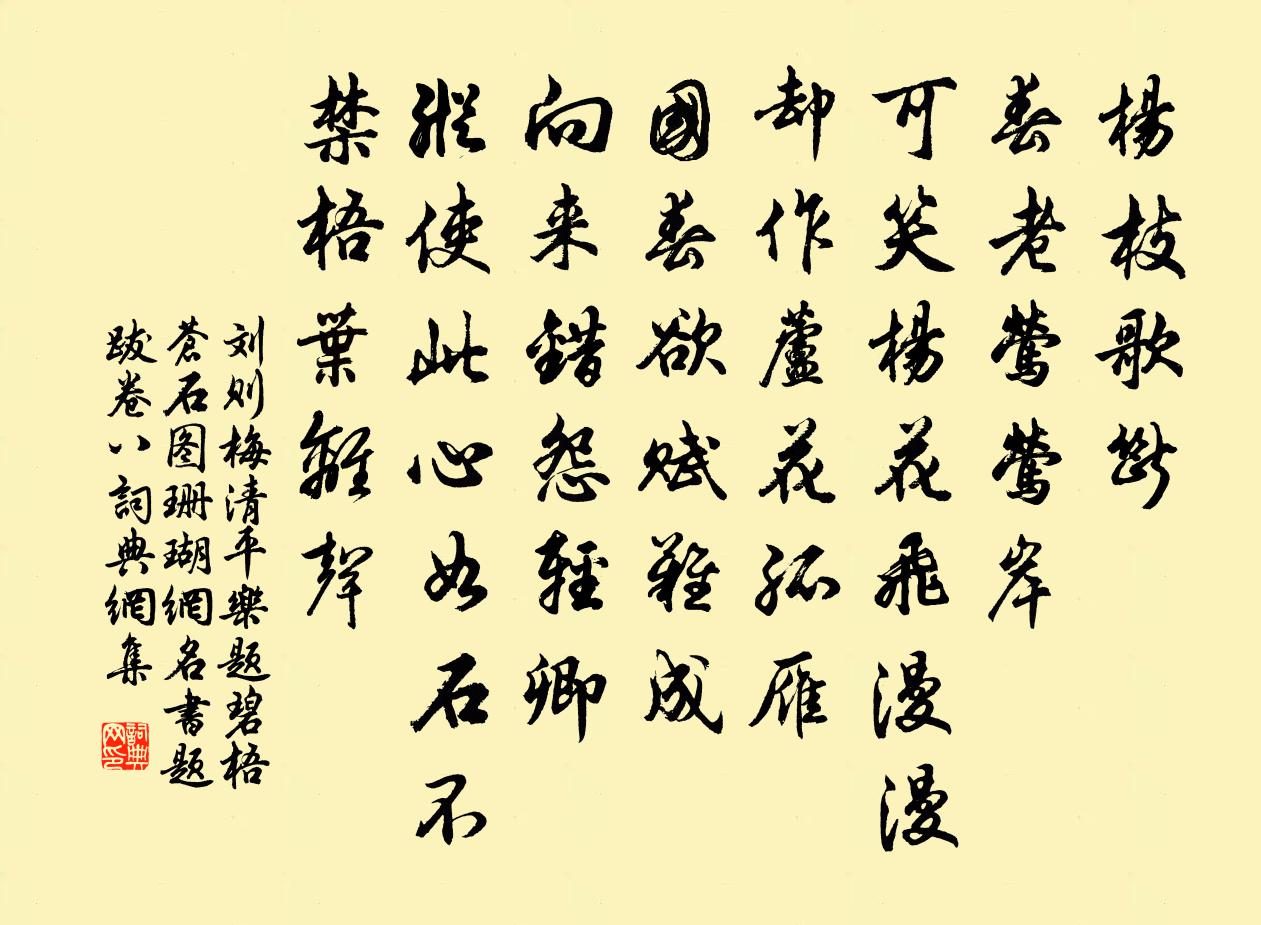 楊枝歌斷
春老鶯鶯岸
可笑楊花飛漫漫
却作蘆花孤雁
國春欲賦難成
向来錯怨輕卿
縱使此心如石不
禁梧葉離聲
刘则梅清平樂题碧梧
蒼石图珊瑚網名書题
跋卷八詞典網集
詞典
网印